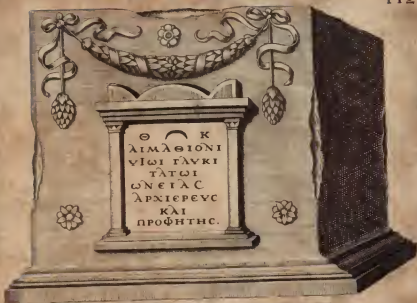 112
Θ ⁀ Κ
ΑΙΜΑΘΙΟΝΙ
ΥΙΩΙ ΓΛΥΚΙ
ΤΑΤΩΙ
ΩΝΕΙΑC
ΑΡΧΙΕΡΕΥC
ΚΑΙ
ΠΡΟΦΗΤΗC.